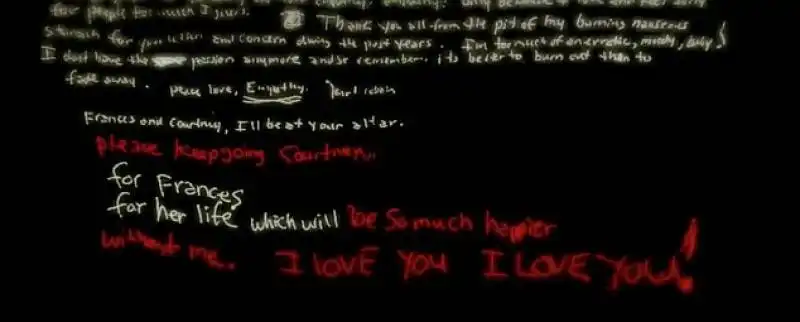 for people for much I
Thank you all from the pit of my burning nauseous
stomach for your and concern during the past years. I'm too much of an erratic, moody, baby!
I dont have the passion anymore and so remember, its better to burn out than to
fade away.
peace love, Empathy. Kurt Cobain
Frances and Courtney, I'll be at your altar.
please keep going Courtney,
for Frances
for her life which will be so much happier
without me. I LOVE YOU I LOVE YOU!